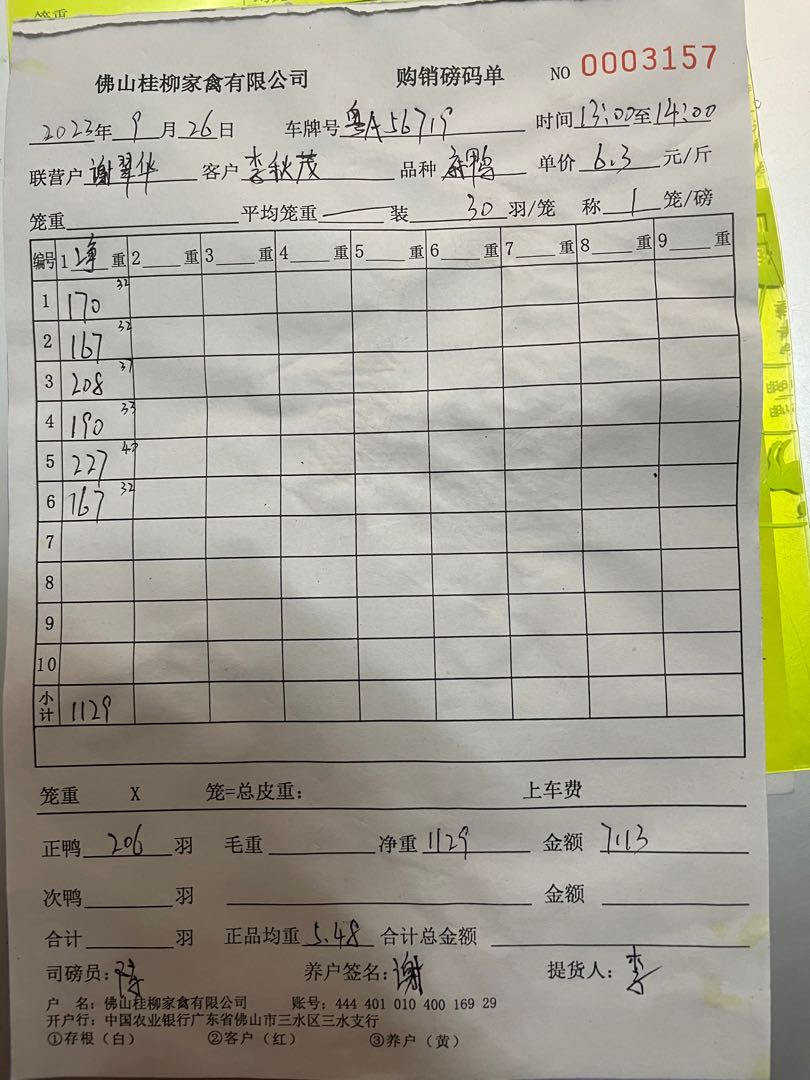 佛山桂柳家禽有限公司 购销磅码单 NO 0003157
2023年 9 月 26 日 车牌号 粤A56719 时间 13:00 至 14:00
联营户 谢翠华 客户 李秋茂 品种 麻鸭 单价 6.3 元/斤
笼重 平均笼重 — 装 30 羽/笼 称 1 笼/磅
编号 1 净 重 2 重 3 重 4 重 5 重 6 重 7 重 8 重 9 重
1 170 32
2 167 32
3 208 37
4 190 33
5 227
6 167 32
7
8
9
10
小计 1129
笼重 X 笼=总皮重: 上车费
正鸭 206 羽 毛重 净重 1129 金额 7113
次鸭 羽 金额
合计 羽 正品均重 5.48 合计总金额
司磅员: 养户签名: 谢 提货人: 李
户 名: 佛山桂柳家禽有限公司 账号: 444 401 010 400 169 29
开户行: 中国农业银行广东省佛山市三水区三水支行
①存根(白) ②客户(红) ③养户(黄)